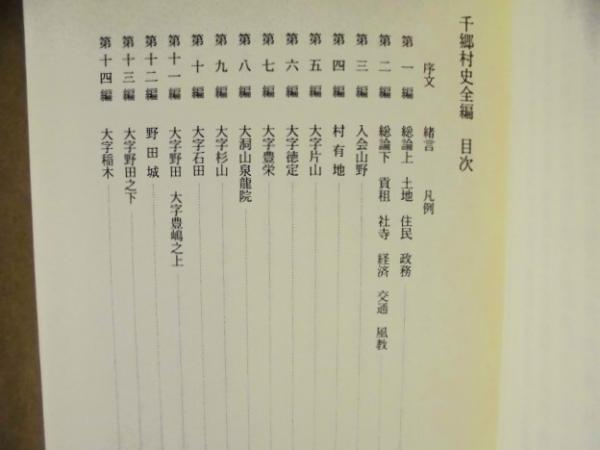 千郷村史全編　目次
序文　緒言　凡例
第一編　総論上　土地　住民　政務
第二編　総論下　貢租　社寺　経済　交通　風教
第三編　入会山野
第四編　村有地
第五編　大字片山
第六編　大字徳定
第七編　大字豊栄
第八編　大洞山泉龍院
第九編　大字杉山
第十編　大字石田
第十一編　大字野田　大字豊嶋之上
第十二編　野田城
第十三編　大字野田之下
第十四編　大字稲木